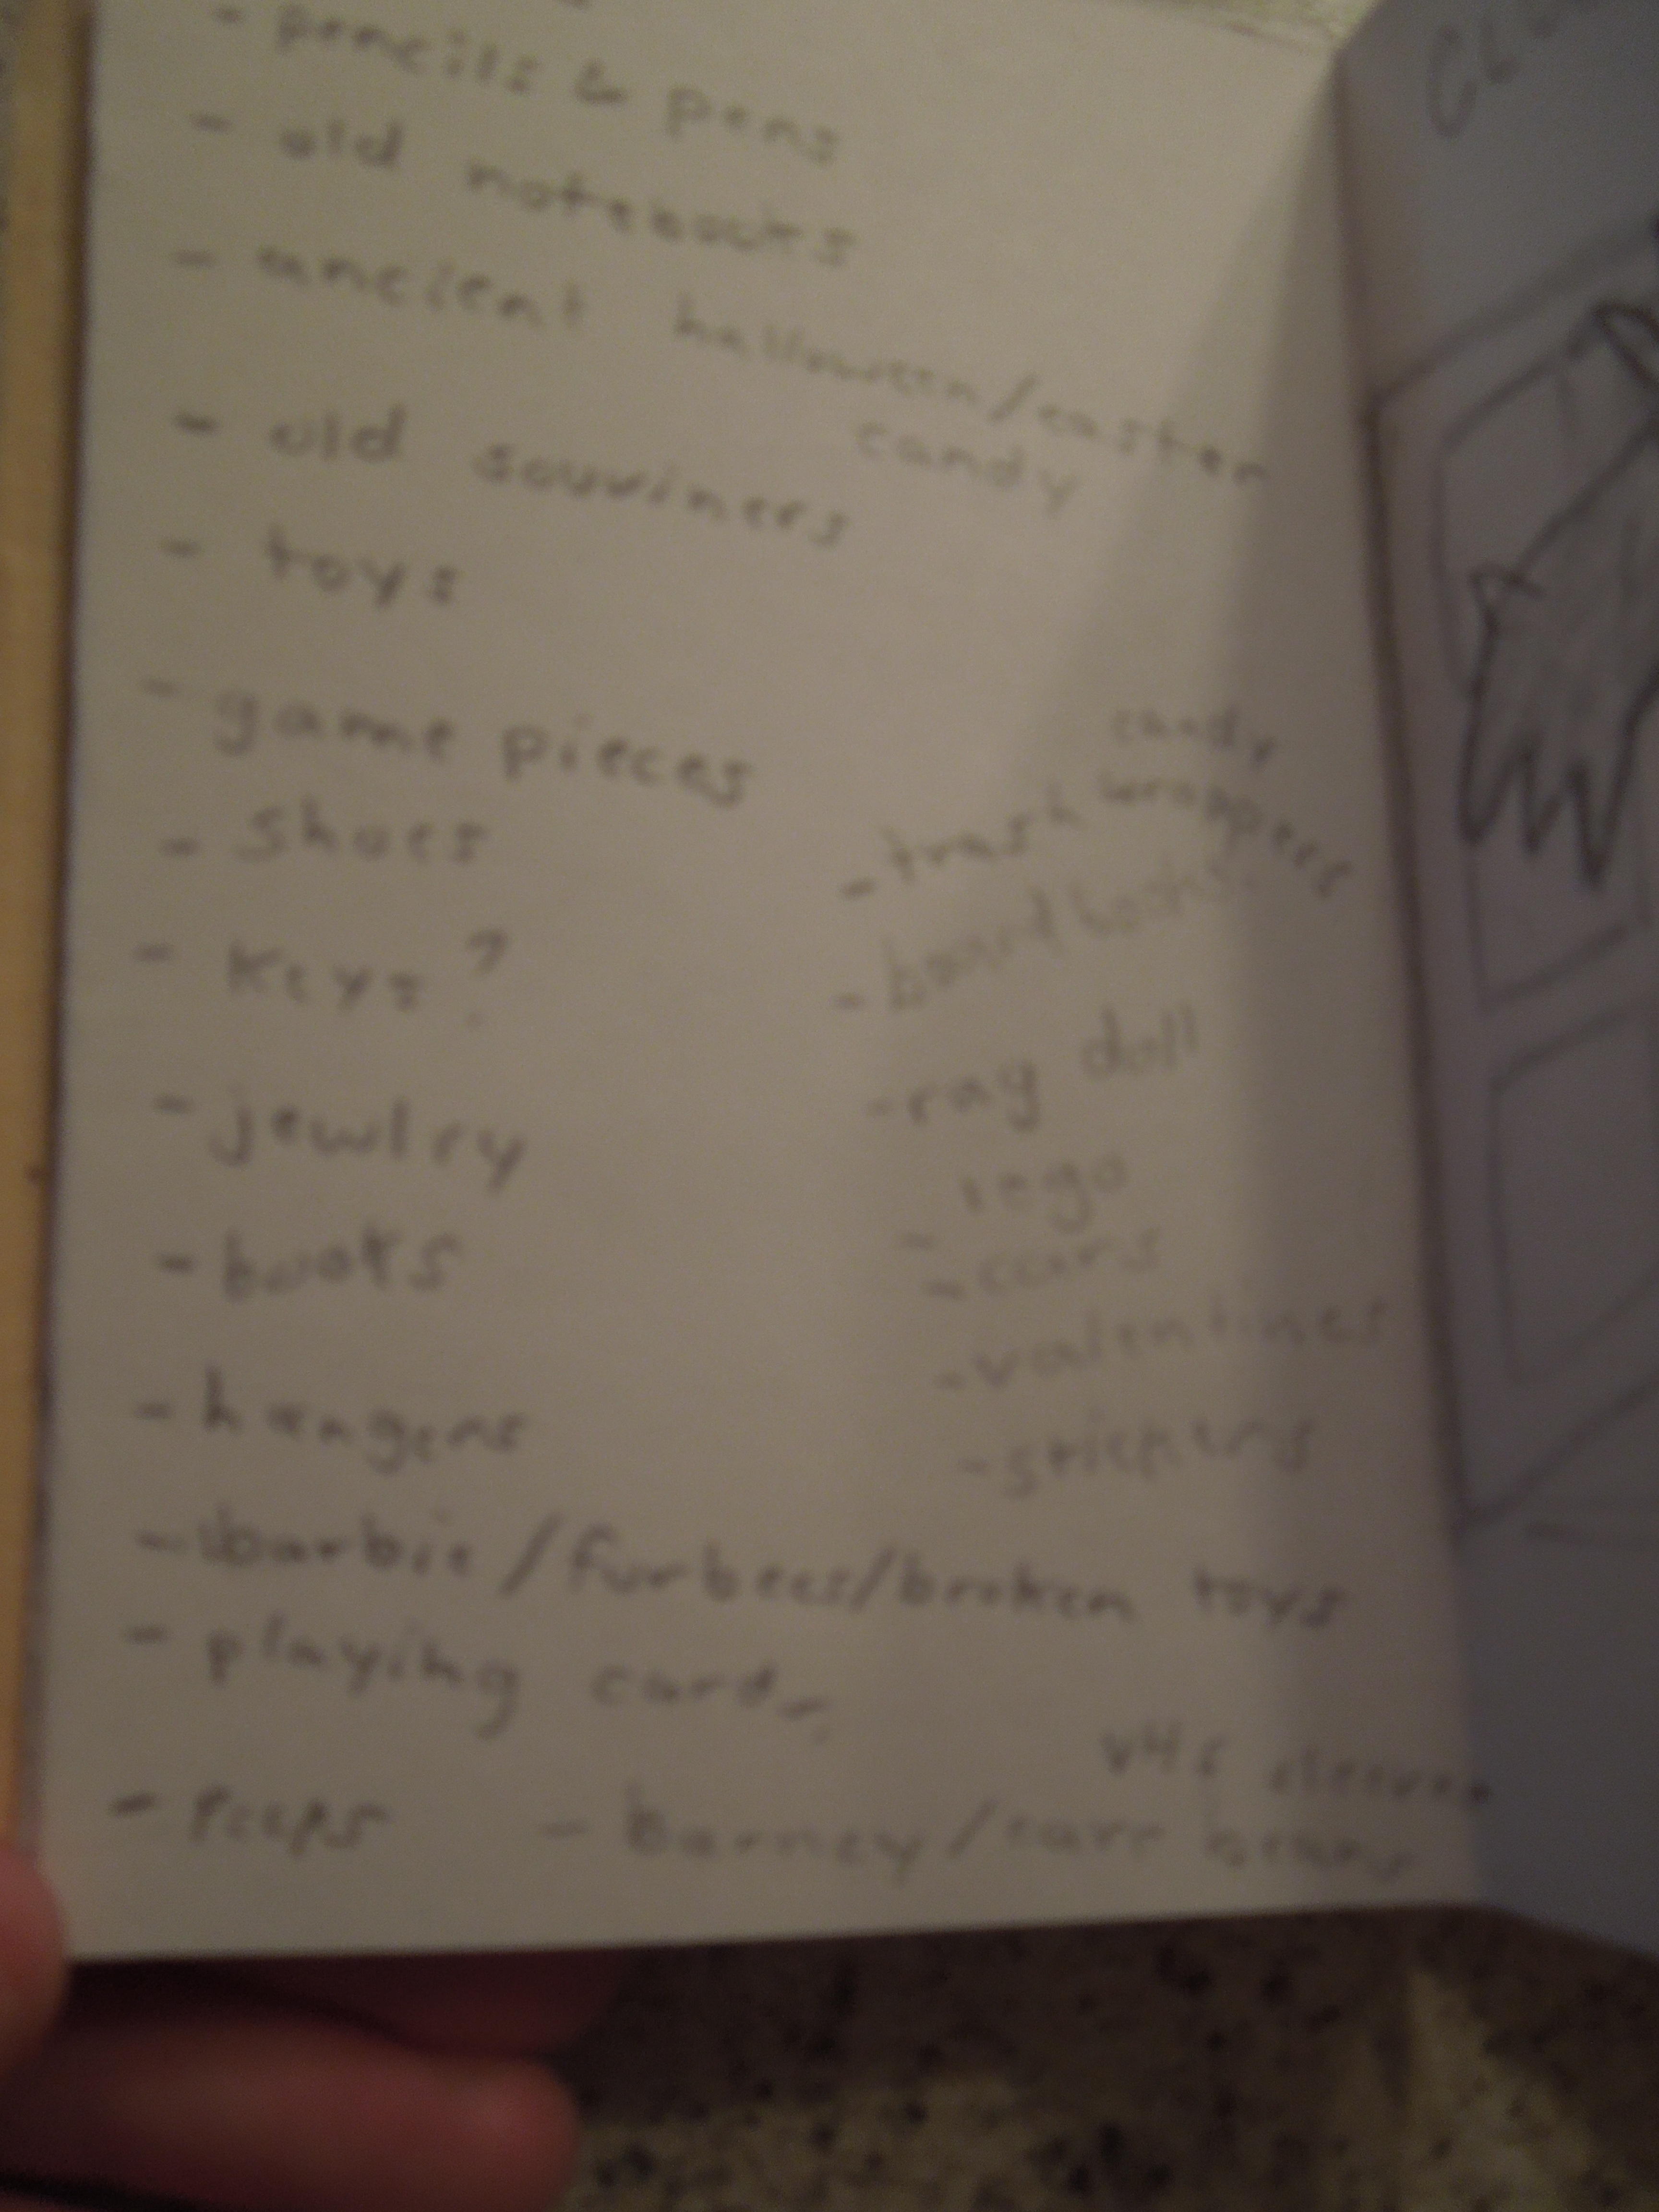 - pencils & pens
- old notebooks
- ancient halloween/easter
candy
- old souviners
- toys
- game pieces
- shoes
- keys?
- jewlry
- books
- hangers
- barbie/furbees/broken toys
- playing cards
- Peeps
candy
- trash wrappers
- board books
- rag doll
- lego
- cars
- valentines
- stickers
VHS
- barney/care bears